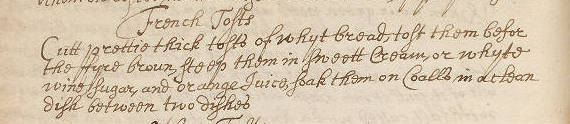 French Tosts
Cutt prettie thick tosts of whyt bread, tost them befor
the fyre broun, steep them in sweett Cream, or whyte
wine, sugar, and orange Juice, soak them on Coalls in a clean
dish between two dishes